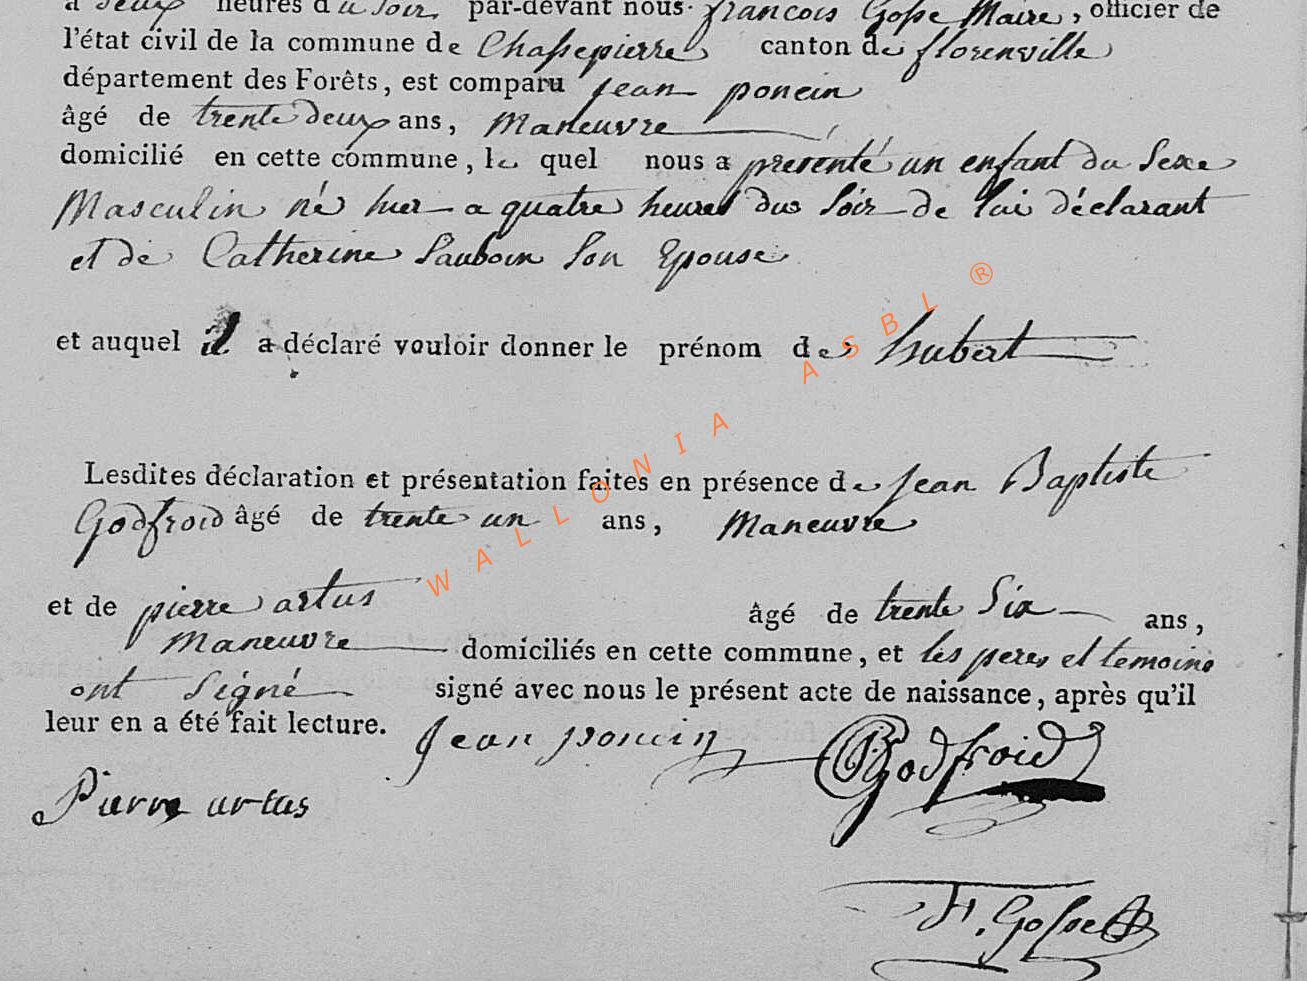 à deux heures du soir, par-devant nous françois Gosse Maire, officier de
l'état civil de la commune de Chassepierre canton de florenville
département des Forêts, est comparu jean poncin
âgé de trente deux ans, Maneuvre
domicilié en cette commune, le quel nous a présenté un enfant du Sexe
Masculin né hier a quatre heures du Soir de lui déclarant
et de Catherine Sauboin Son Epouse
et auquel il a déclaré vouloir donner le prénom de hubert
Lesdites déclaration et présentation faites en présence de jean Baptiste
Godfroid âgé de trente un ans, Maneuvre
et de pierre artus âgé de trente Six ans,
Maneuvre domiciliés en cette commune, et les peres et temoins
ont Signé signé avec nous le présent acte de naissance, après qu'il
leur en a été fait lecture. Jean poncin Godfroid
Pierre artus
F. Gosse
WALLONIA ASBL ®